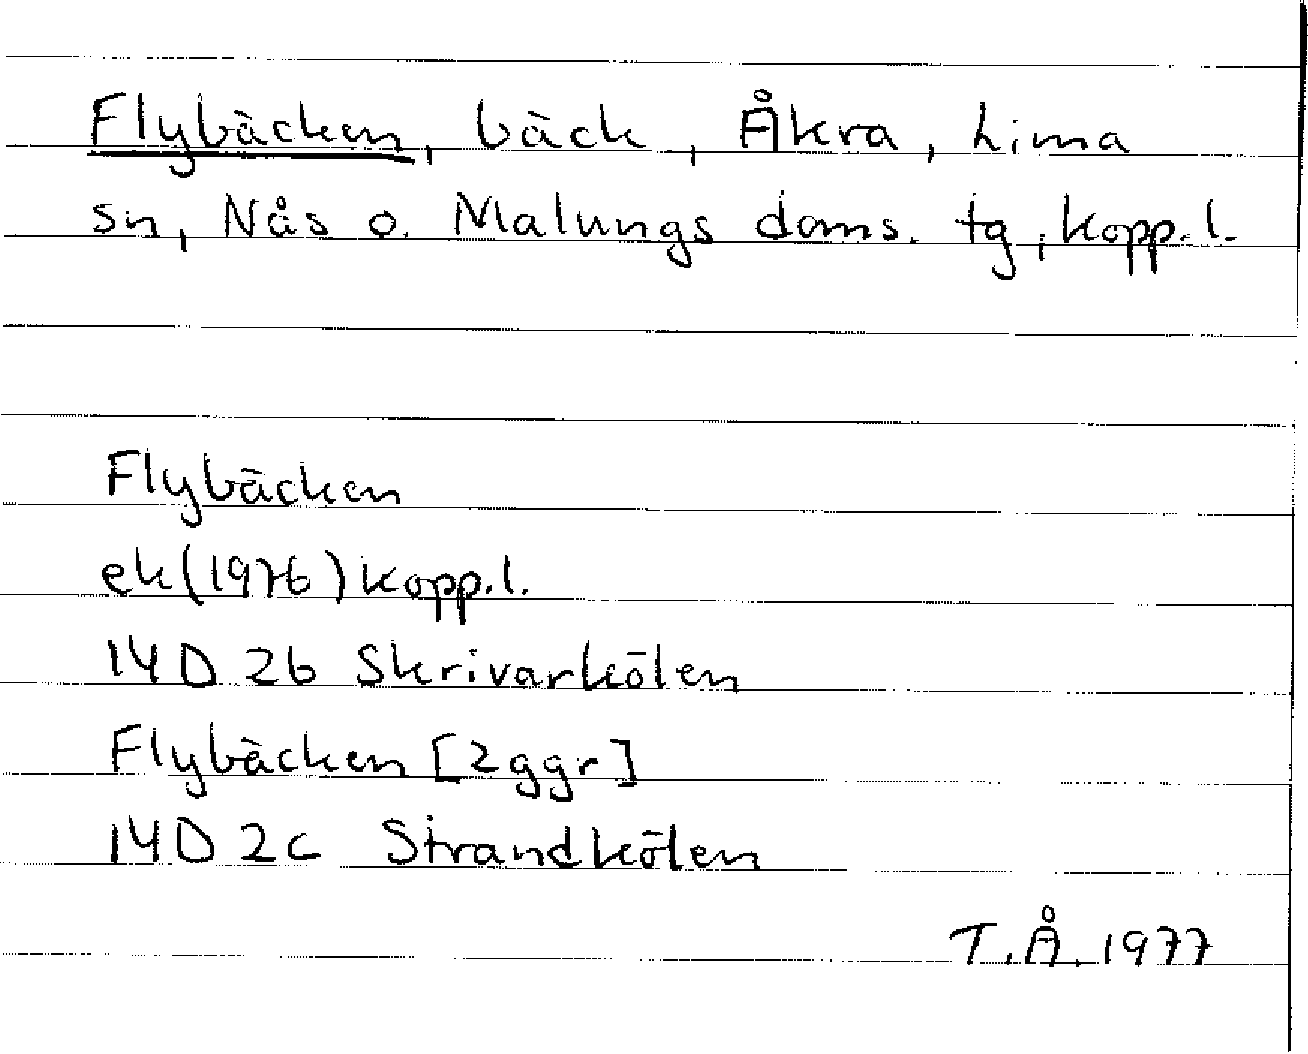 Flybäcken, bäck, Åkra, Lima
sn, Nås o. Malungs doms. tg, Kopp.l.
Flybäcken
ek(1976) Kopp.l.
14D 2b Skrivarkölen
Flybäcken [2ggr]
14D 2c Strandkölen
T.Å. 1977